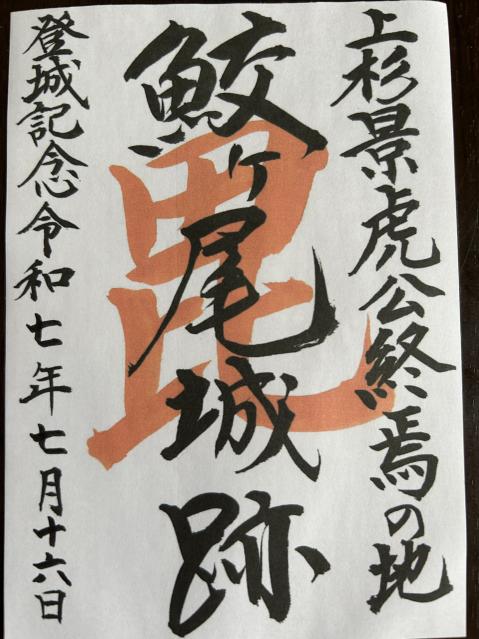 上杉景虎公終焉の地
鮫ヶ尾城跡
毘
登城記念令和七年七月十六日